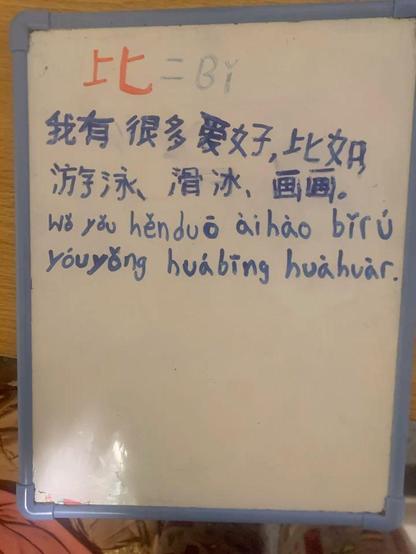 比=Bǐ
我有很多爱好,比如
游泳、滑冰、画画。
Wǒ yǒu hěnduō àihào bǐrú
yóuyǒng huábīng huàhuàr.